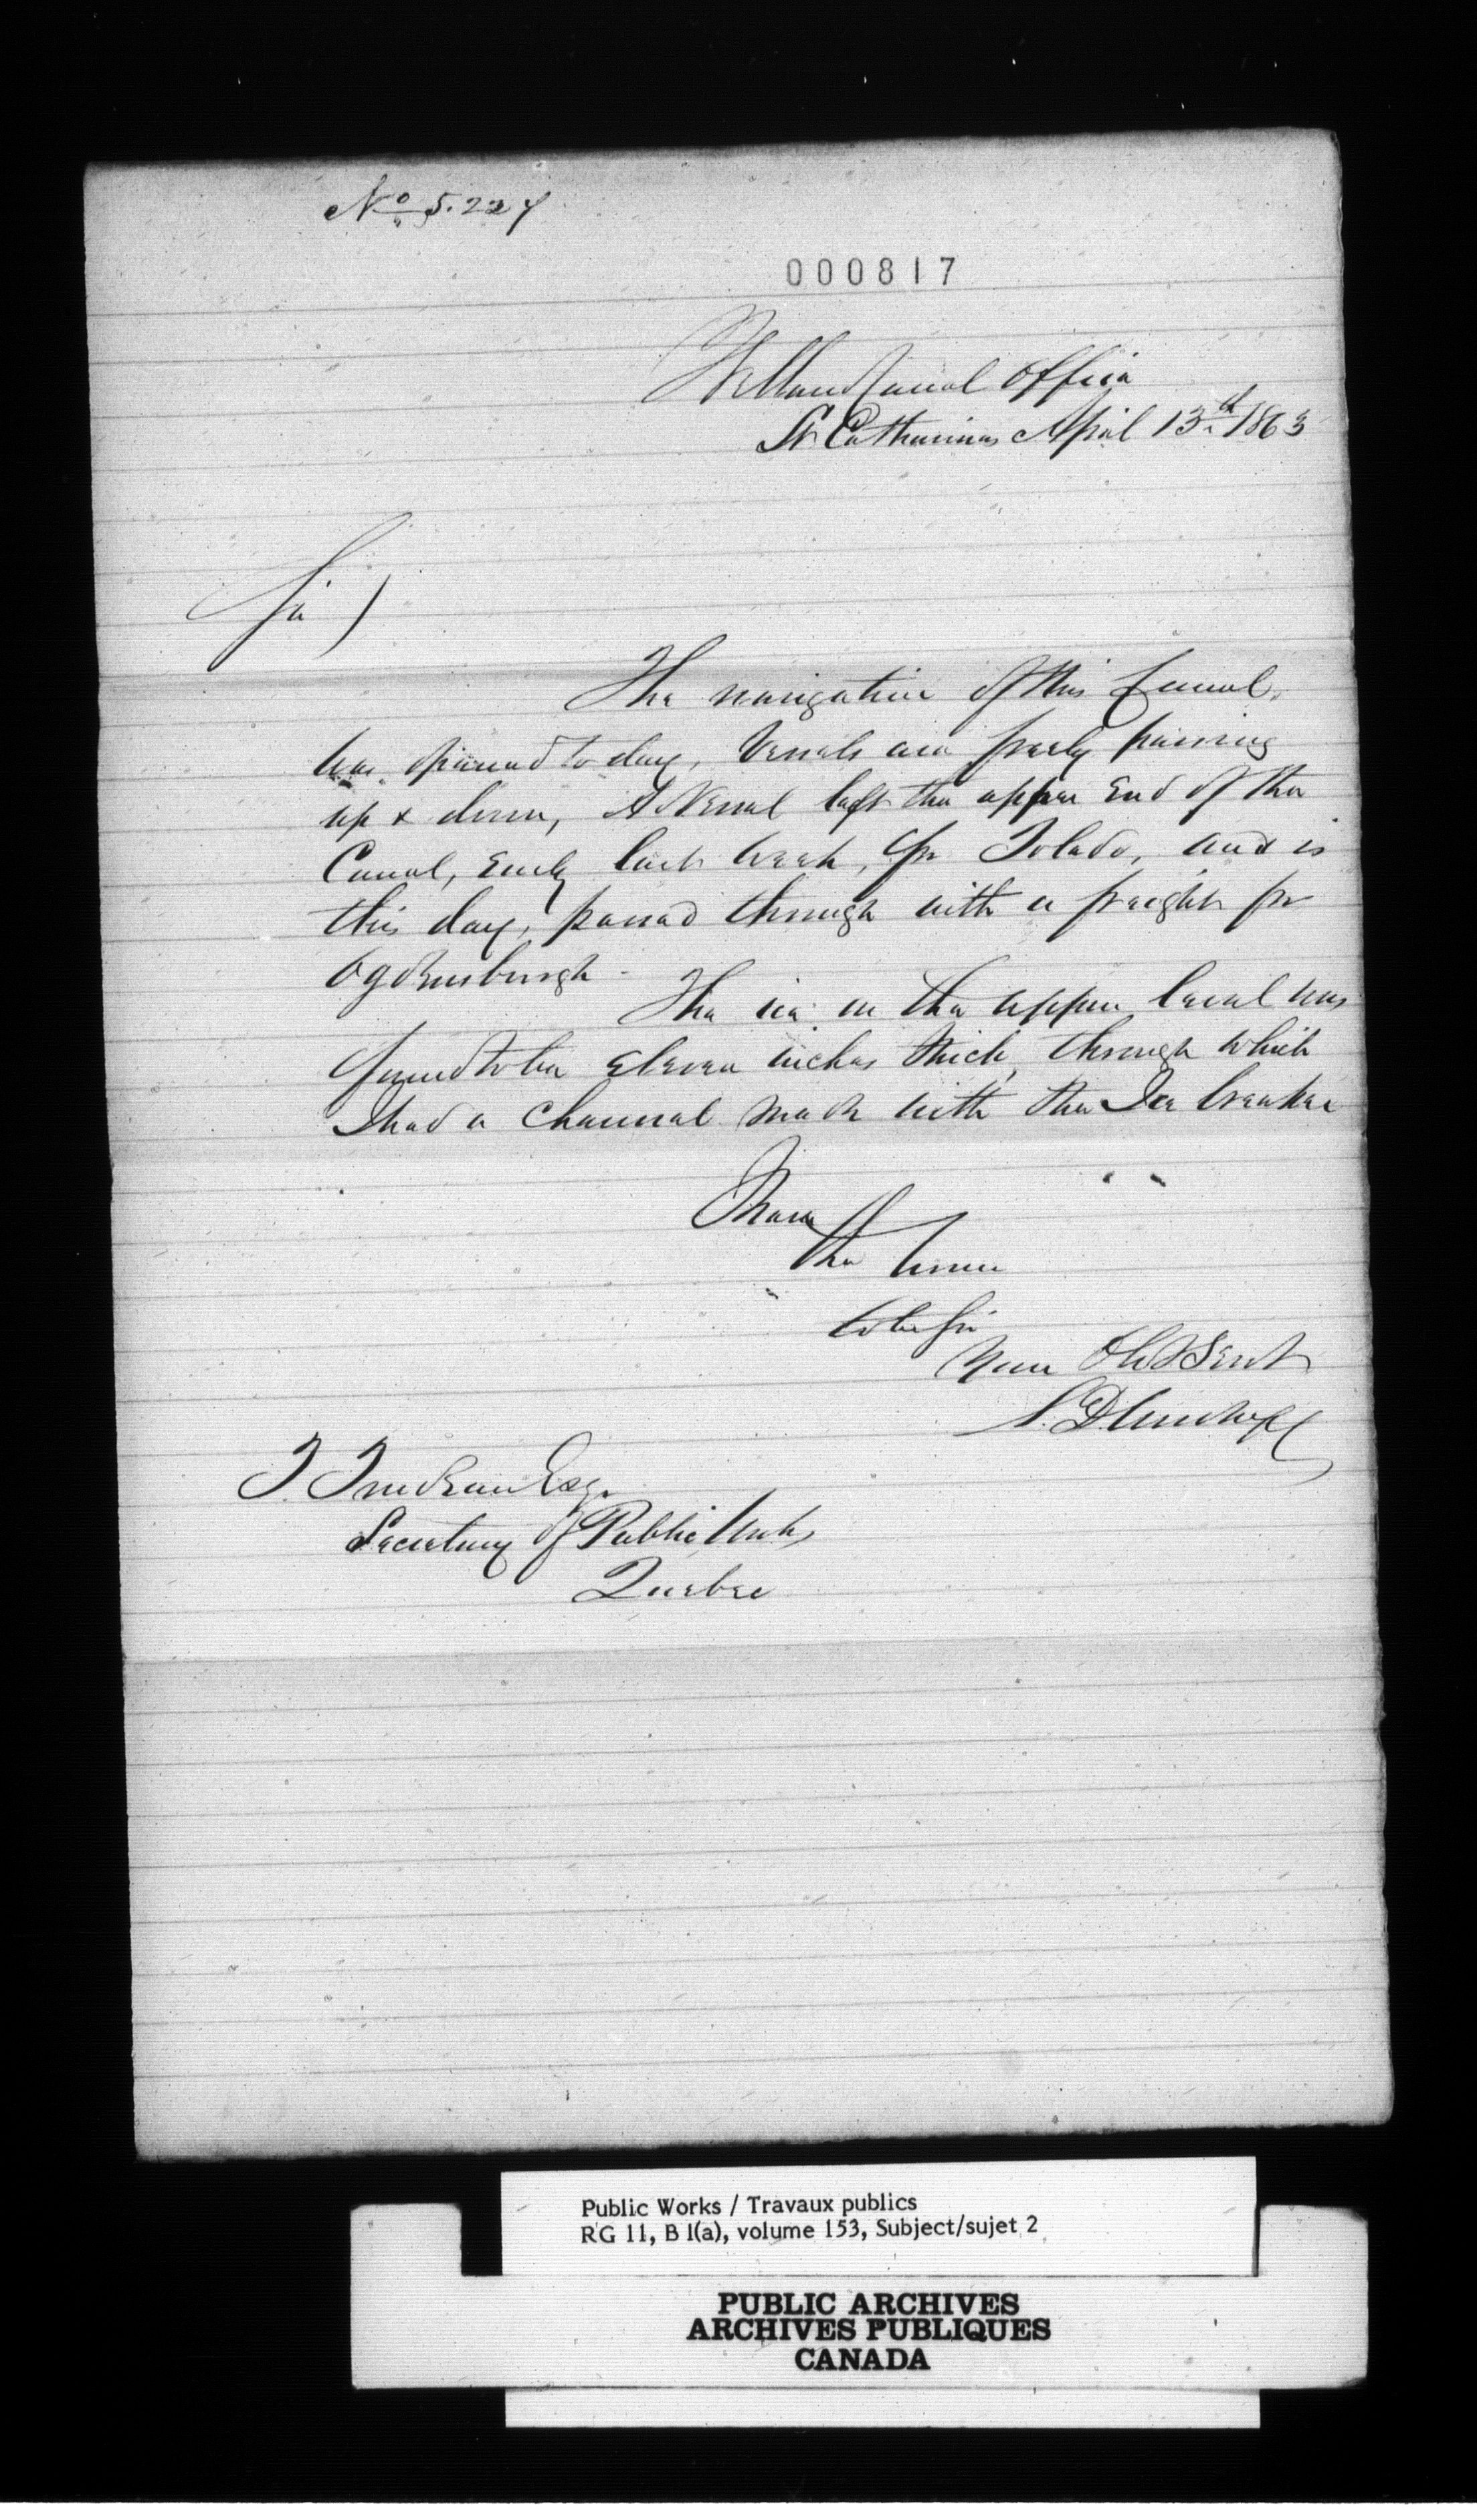 No 5.227
000817
Welland Canal Office
St Catharines April 13th 1863
Sir
The navigation of this Canal
was opened to day, Vessels are freely passing
up & down, A Vessel left the upper End of the
Canal, Early last week, for Toledo, and is
this day, passed through with a freight for
Ogdensburgh -
The ice in the upper level was
found to be Eleven inches thick, through which
I had a Channel made with the Ice breaker
I have
the honor
to be Sir
Your Obt Servt
S. D. Woodruff
T. Trudeau Esq.
Secretary of Public Works
Quebec
Public Works / Travaux publics
RG 11, B 1(a), volume 153, Subject/sujet 2
PUBLIC ARCHIVES
ARCHIVES PUBLIQUES
CANADA